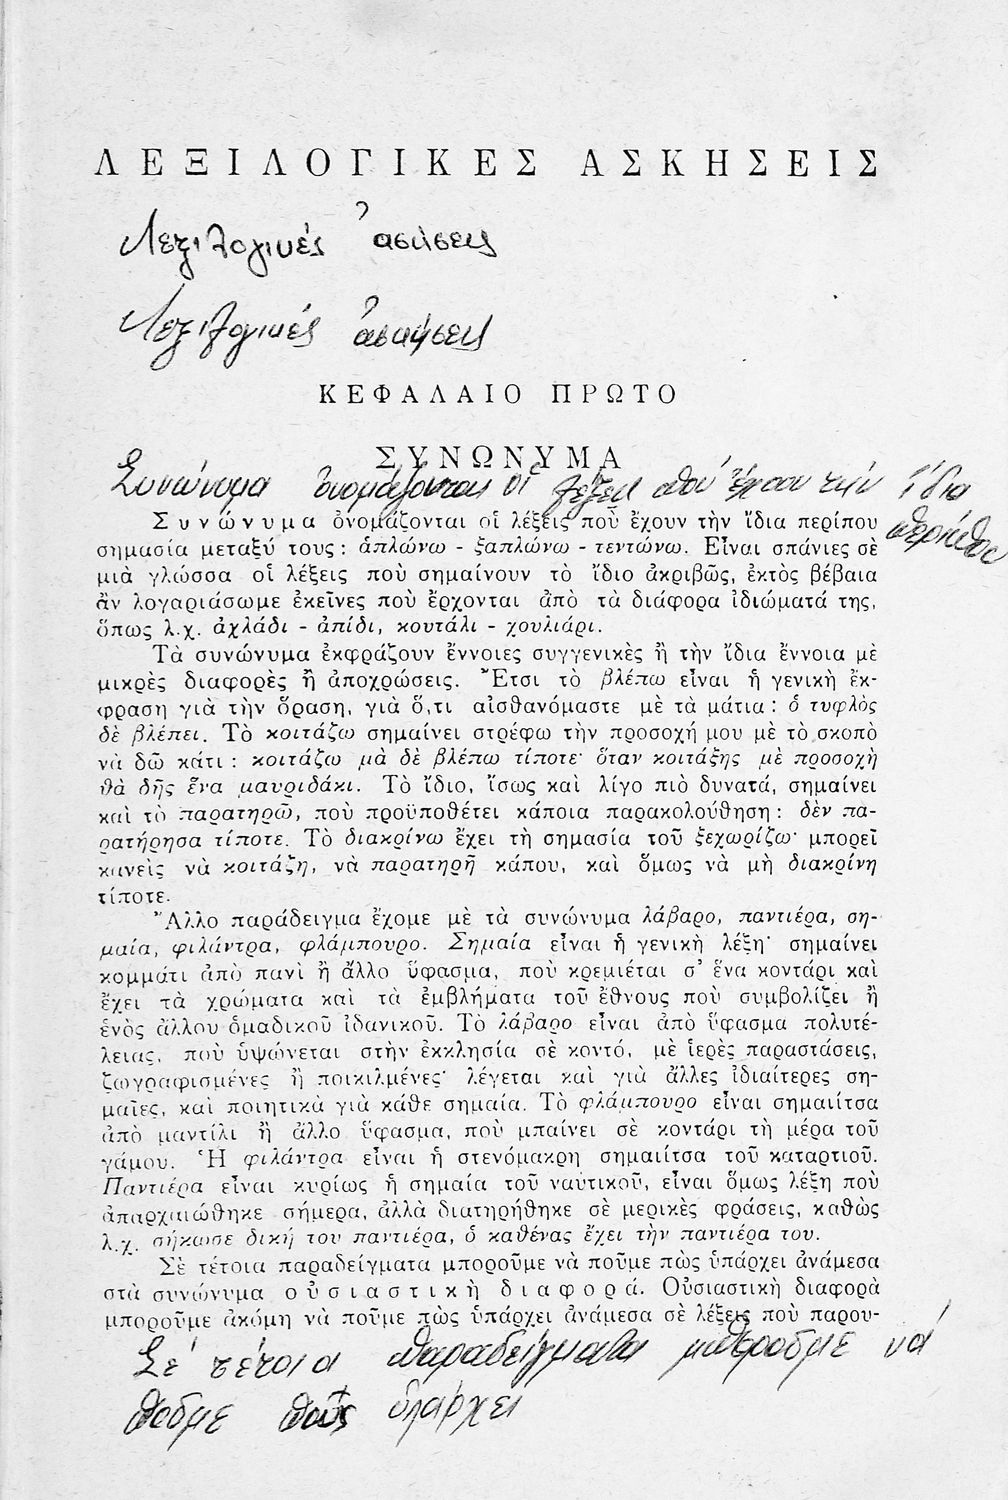 ΛΕΞΙΛΟΓΙΚΕΣ ΑΣΚΗΣΕΙΣ
Λεξιλογικές ἀσκήσεις
Λεξιλογικές ἀσκήσεις
ΚΕΦΑΛΑΙΟ ΠΡΩΤΟ
ΣΥΝΩΝΥΜΑ
Συνώνυμα ὀνομάζονται οἱ λέξεις πού ἔχουν τήν ἴδια
περίπου
Συνώνυμα ὀνομάζονται οἱ λέξεις ποὺ ἔχουν τὴν ἴδια περίπου
σημασία μεταξύ τους : ἁπλώνω - ξαπλώνω - τεντώνω. Εἶναι σπάνιες σὲ
μιὰ γλώσσα οἱ λέξεις ποὺ σημαίνουν τὸ ἴδιο ἀκριβῶς, ἐκτὸς βέβαια
ἂν λογαριάσωμε ἐκεῖνες ποὺ ἔρχονται ἀπὸ τὰ διάφορα ἰδιώματά της,
ὅπως λ.χ. ἀχλάδι - ἀπίδι, κουτάλι - χουλιάρι.
Τὰ συνώνυμα ἐκφράζουν ἔννοιες συγγενικὲς ἢ τὴν ἴδια ἔννοια μὲ
μικρὲς διαφορὲς ἢ ἀποχρώσεις. Ἔτσι τὸ βλέπω εἶναι ἡ γενικὴ ἔκ-
φραση γιὰ τὴν ὅραση, γιὰ ὅ,τι αἰσθανόμαστε μὲ τὰ μάτια : ὁ τυφλὸς
δὲ βλέπει. Τὸ κοιτάζω σημαίνει στρέφω τὴν προσοχή μου μὲ τὸ σκοπὸ
νὰ δῶ κάτι : κοιτάζω μὰ δὲ βλέπω τίποτε· ὅταν κοιτάξης μὲ προσοχὴ
θὰ δῆς ἕνα μαυριδάκι. Τὸ ἴδιο, ἴσως καὶ λίγο πιὸ δυνατά, σημαίνει
καὶ τὸ παρατηρῶ, ποὺ προϋποθέτει κάποια παρακολούθηση : δὲν πα-
ρατήρησα τίποτε. Τὸ διακρίνω ἔχει τὴ σημασία τοῦ ξεχωρίζω· μπορεῖ
κανεὶς νὰ κοιτάζη, νὰ παρατηρῆ κάπου, καὶ ὅμως νὰ μὴ διακρίνη
τίποτε.
Ἄλλο παράδειγμα ἔχομε μὲ τὰ συνώνυμα λάβαρο, παντιέρα, ση-
μαία, φιλάντρα, φλάμπουρο. Σημαία εἶναι ἡ γενικὴ λέξη· σημαίνει
κομμάτι ἀπὸ πανὶ ἢ ἄλλο ὕφασμα, ποὺ κρεμιέται σ' ἕνα κοντάρι καὶ
ἔχει τὰ χρώματα καὶ τὰ ἐμβλήματα τοῦ ἔθνους ποὺ συμβολίζει ἢ
ἑνὸς ἄλλου ὁμαδικοῦ ἰδανικοῦ. Τὸ λάβαρο εἶναι ἀπὸ ὕφασμα πολυτέ-
λειας, ποὺ ὑψώνεται στὴν ἐκκλησία σὲ κοντό, μὲ ἱερὲς παραστάσεις,
ζωγραφισμένες ἢ ποικιλμένες· λέγεται καὶ γιὰ ἄλλες ἰδιαίτερες ση-
μαῖες, καὶ ποιητικὰ γιὰ κάθε σημαία. Τὸ φλάμπουρο εἶναι σημαιίτσα
ἀπὸ μαντίλι ἢ ἄλλο ὕφασμα, ποὺ μπαίνει σὲ κοντάρι τὴ μέρα τοῦ
γάμου. Ἡ φιλάντρα εἶναι ἡ στενόμακρη σημαιίτσα τοῦ καταρτιοῦ.
Παντιέρα εἶναι κυρίως ἡ σημαία τοῦ ναυτικοῦ, εἶναι ὅμως λέξη ποὺ
ἀπαρχαιώθηκε σήμερα, ἀλλὰ διατηρήθηκε σὲ μερικὲς φράσεις, καθὼς
λ.χ. σήκωσε δική του παντιέρα, ὁ καθένας ἔχει τὴν παντιέρα του.
Σὲ τέτοια παραδείγματα μποροῦμε νὰ ποῦμε πὼς ὑπάρχει ἀνάμεσα
στὰ συνώνυμα οὐσιαστικὴ διαφορά. Οὐσιαστικὴ διαφορὰ
μποροῦμε ἀκόμη νὰ ποῦμε πὼς ὑπάρχει ἀνάμεσα σὲ λέξεις ποὺ παρου-
Σέ τέτοια παραδείγματα μποροῦμε νά
ποῦμε πώς ὑπάρχει